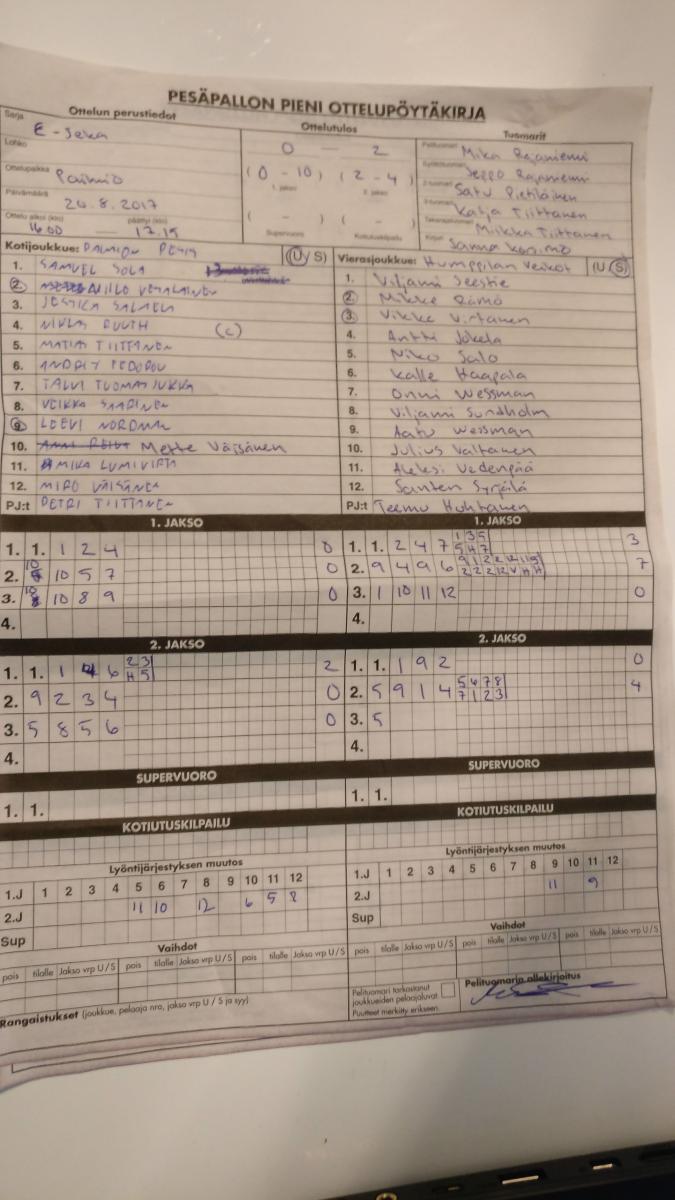 PESÄPALLON PIENI OTTELUPÖYTÄKIRJA
Ottelun perustiedot
Ottelutulos
Tuomarit
Sarja
E-
Lohko
Ottelupaikka
Paimio
Päivämäärä
20.8.2017
Ottelu alkoi (klo) päättyi (klo)
16.00 — 17.15
0 — 2
(0 - 10) (2 - 4)
1. jakso 2. jakso
( - ) ( - )
Supervuoro Kotiutuskilpailu
Pelituomari Mika Rajaniemi
Seppo Rajaniemi
2-tuomari Satu Pietiläinen
Katja Tiittanen
Miikka Tiittanen
Sanna
Kotijoukkue: PAIMION (U/S)
1. SAMUEL SOLA
2. NIILO
3. JESTICA
4. NIKLAS RUUTH (C)
5. MATIAS TIITTANEN
6. ANDREY FEDOROV
7. TALVI TUOMAS JUKKA
8. VEIKKA SAARINEN
9. LEEVI NORDMAN
10. Mette Väisänen
11. MIKA LUMIVIRTA
12. MIRO VÄISÄNEN
PJ:t PETRI TIITTANEN
Vierasjoukkue: Humppilan Veikot (U/S)
1. Viljami Seestie
2. Mikke Rämö
3. Vikke Virtanen
4. Antti Jokela
5. Niko Salo
6. Kalle Haapala
7. Onni Wessman
8. Viljami Sundholm
9. Aatu Wessman
10. Julius Valtanen
11. Aleksi Vedenpää
12. Santeri Syrjälä
PJ:t Teemu Huhtanen
1. JAKSO
1. 1. 1 2 4 0
2. 10 5 7 0
3. 10 8 9 0
4.
1. JAKSO
1. 1. 2 4 7 1 3 5 3
5 H 7
2. 9 4 9 6 7
3. 1 10 11 12 0
4.
2. JAKSO
1. 1. 1 6 2 3 2
H 5
2. 9 2 3 4 0
3. 5 8 5 6 0
4.
2. JAKSO
1. 1. 1 9 2 0
2. 5 9 1 4 5 6 7 8 4
7 1 2 3
3. 5
4.
SUPERVUORO
1. 1.
SUPERVUORO
1. 1.
KOTIUTUSKILPAILU
KOTIUTUSKILPAILU
Lyöntijärjestyksen muutos
1.J 1 2 3 4 5 6 7 8 9 10 11 12
2.J 11 10 12 6 5 8
Sup
Lyöntijärjestyksen muutos
1.J 1 2 3 4 5 6 7 8 9 10 11 12
2.J 11 9
Sup
Vaihdot
pois tilalle Jakso vrp U/S pois tilalle Jakso vrp U/S pois tilalle Jakso vrp U/S
Vaihdot
pois tilalle Jakso vrp U/S pois tilalle Jakso vrp U/S pois tilalle Jakso vrp U/S
Rangaistukset (joukkue, pelaaja nro, jakso vrp U / S ja syy)
Pelituomari tarkastanut
joukkueiden pelaajaluvat
Puutteet merkitty erikseen.
Pelituomarin allekirjoitus